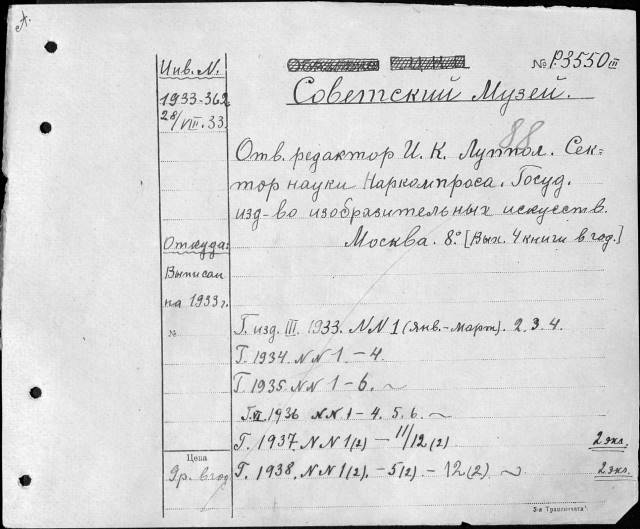 А.
Инв. N.
1933-362
28/VIII. 33.
№ Р.3550 III
Советский Музей.
88
Отв. редактор И. К. Луппол. Сек=
тор науки Наркомпроса. Госуд.
изд-во изобразительных искусств.
Москва. 8° [Вых. 4 книги в год.]
Откуда:
Выписан
на 1933 г.
№
Г. изд. III. 1933. NN 1 (янв.-март). 2. 3. 4.
Г. 1934 NN 1 - 4.
Г 1935 NN 1 - 6. ~
Г. VI 1936 NN 1 - 4. 5. 6. ~
Г. 1937. NN 1(2) - 11/12 (2) 2 экз.
Цена
9р. в год
Г. 1938. NN 1(2). - 5(2) - 12(2) ~ 2 экз.